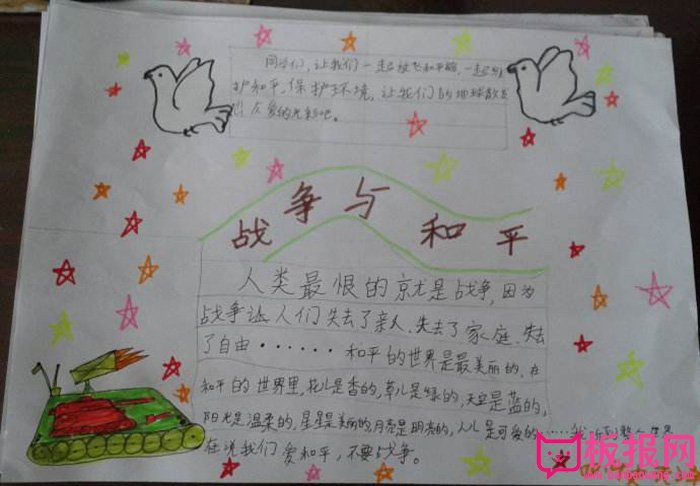 同学们,让我们一起放飞和平鸽,一起
护和平,保护环境,让我们的地球散发
出友爱的光彩吧。
战争与和平
人类最恨的就是战争,因为
战争让人们失去了亲人、失去了家庭、失去
了自由······和平的世界是最美丽的,在
和平的世界里,花儿是香的,草儿是绿的,天空是蓝的,
阳光是温柔的,星星是美丽的,月亮是明亮的,人儿是可爱的······我
在说我们爱和平,不要战争。
板报网